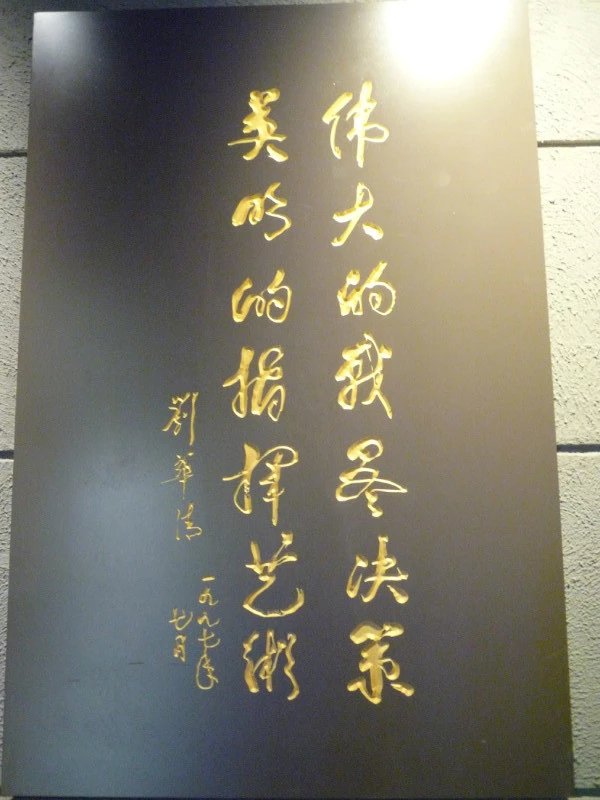 伟大的战略决策
英明的指挥艺术
刘华清
一九九七年
七月